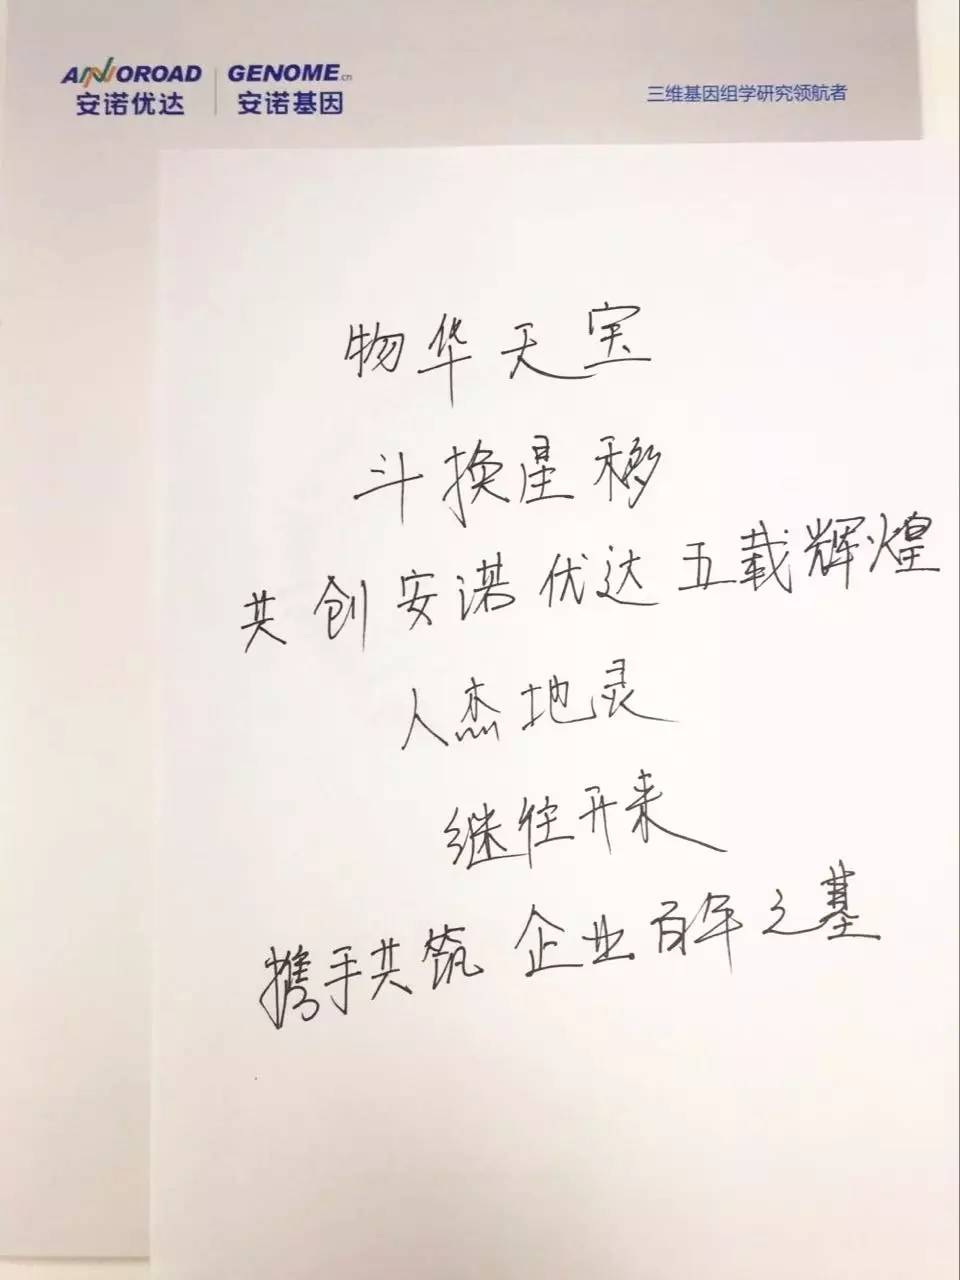 ANNOROAD GENOME.cn
安诺优达 安诺基因
三维基因组学研究领航者
物华天宝
斗换星移
共创安诺优达五载辉煌
人杰地灵
继往开来
携手共筑 企业百年之基